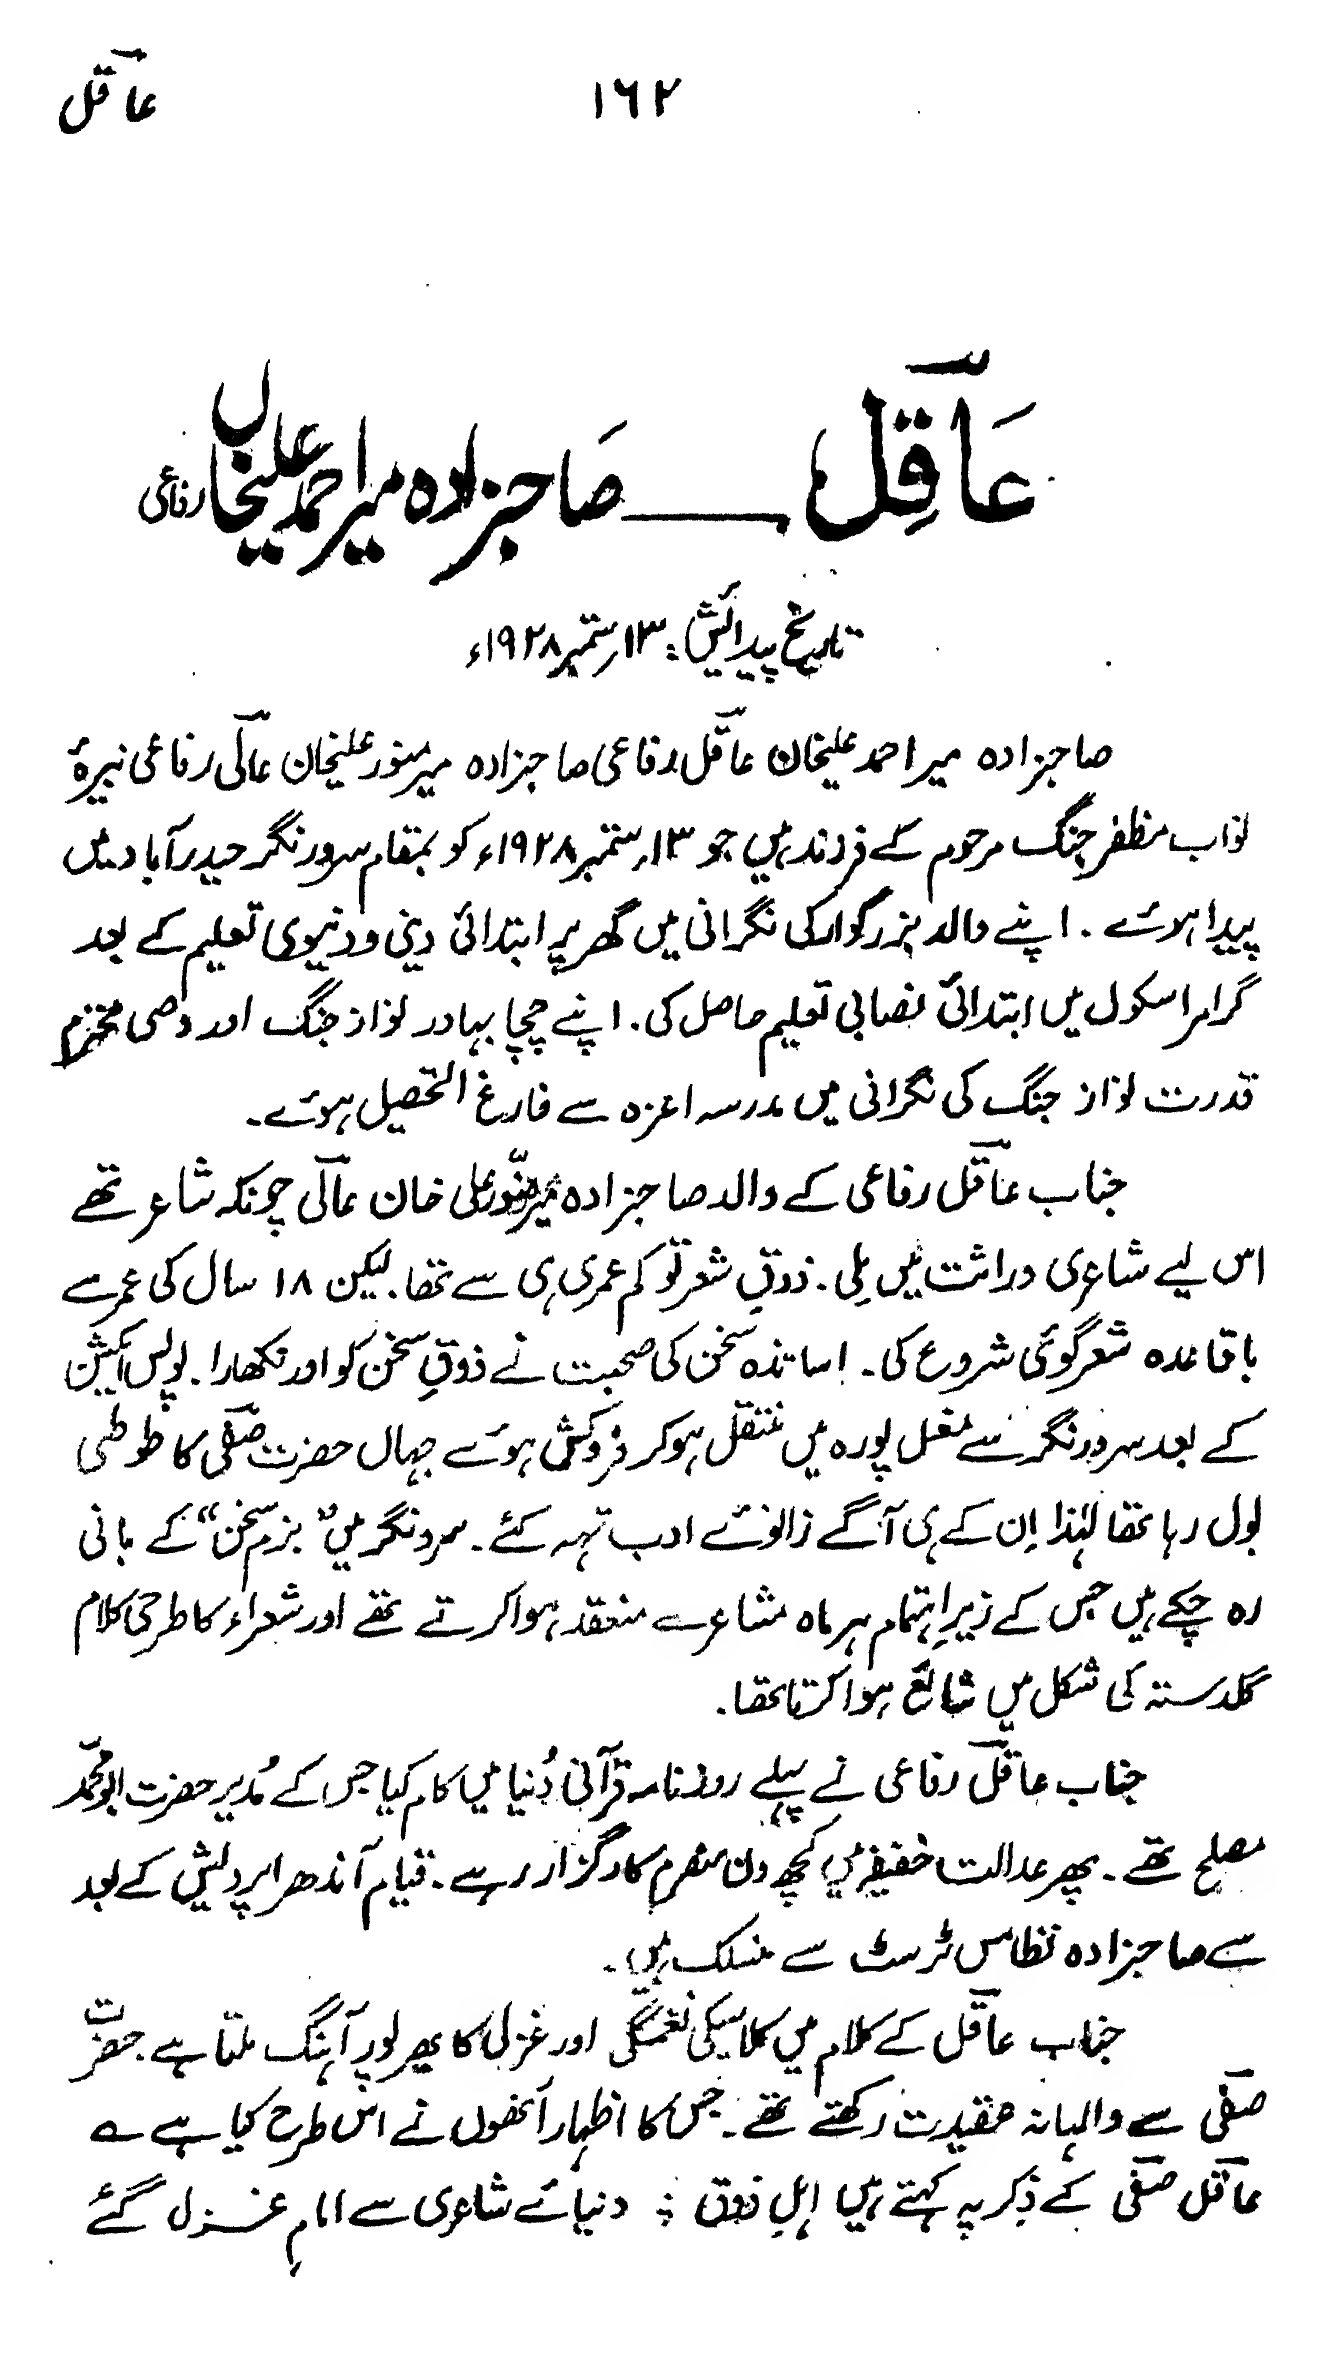 عاقل ۱۶۲
عَاقِل ــــ صَاحبزادہ میر احمد علیخاں رفاعی
تاریخ پیدائش: ۱۳؍ستمبر ۱۹۲۸ء
صاحبزادہ میر احمد علیخان عاقل رفاعی صاحبزادہ میر منور علیخان عالی رفاعی نبیرۂ
نواب مظفر جنگ مرحوم کے فرزند ہیں جو ۱۳؍ستمبر ۱۹۲۸ء کو بمقام سرور نگر حیدرآباد میں
پیدا ہوئے۔ اپنے والد بزرگوار کی نگرانی میں گھر پر ابتدائی دینی و دنیوی تعلیم کے بعد
گرامر اسکول میں ابتدائی نصابی تعلیم حاصل کی۔ اپنے چچا بہادر نواز جنگ اور وصی محترم
قدرت نواز جنگ کی نگرانی میں مدرسہ اعزہ سے فارغ التحصیل ہوئے۔
جناب عاقل رفاعی کے والد صاحبزادہ میر منور علی خان عالی چونکہ شاعر تھے
اس لیے شاعری وراثت میں مِلی۔ ذوقِ شعر تو کم عمری ہی سے تھا۔ لیکن ۱۸ سال کی عمر سے
باقاعدہ شعر گوئی شروع کی۔ اساتذہ سخن کی صحبت نے ذوقِ سخن کو اور نکھارا۔ پولیس ایکشن
کے بعد سرور نگر سے مغل پورہ میں منتقل ہو کر فروکش ہوئے جہاں حضرت صفی کا طوطی
بول رہا تھا لہٰذا اِن کے ہی آگے زانوئے ادب تہہ کئے۔ سرور نگر میں ”بزم سخن“ کے بانی
رہ چکے ہیں جس کے زیرِ اہتمام ہر ماہ مشاعرے منعقد ہوا کرتے تھے اور شعراء کا طرحی کلام
گلدستہ کی شکل میں شائع ہوا کرتا تھا۔
جناب عاقل رفاعی نے پہلے روزنامہ قرآنی دُنیا میں کام کیا جس کے مُدیر حضرت ابو محمّد
مصلح تھے۔ پھر عدالت خفیفہ میں کچھ دن منصرم کارگزار رہے۔ قیام آندھرا پردیش کے بعد
سے صاحبزادہ نظامس ٹرسٹ سے منسلک ہیں۔
جناب عاقل کے کلام میں کلاسیکی نغمگی اور غزل کا بھرپور آہنگ ملتا ہے۔ حضرت
صفی سے والہانہ عقیدت رکھتے تھے۔ جس کا اظہار اُنھوں نے اس طرح کیا ہے ؎
عاقل صفی کے ذِکر پہ کہتے ہیں اہلِ ذوق ؛ دنیائے شاعری سے امامِ غزل گئے